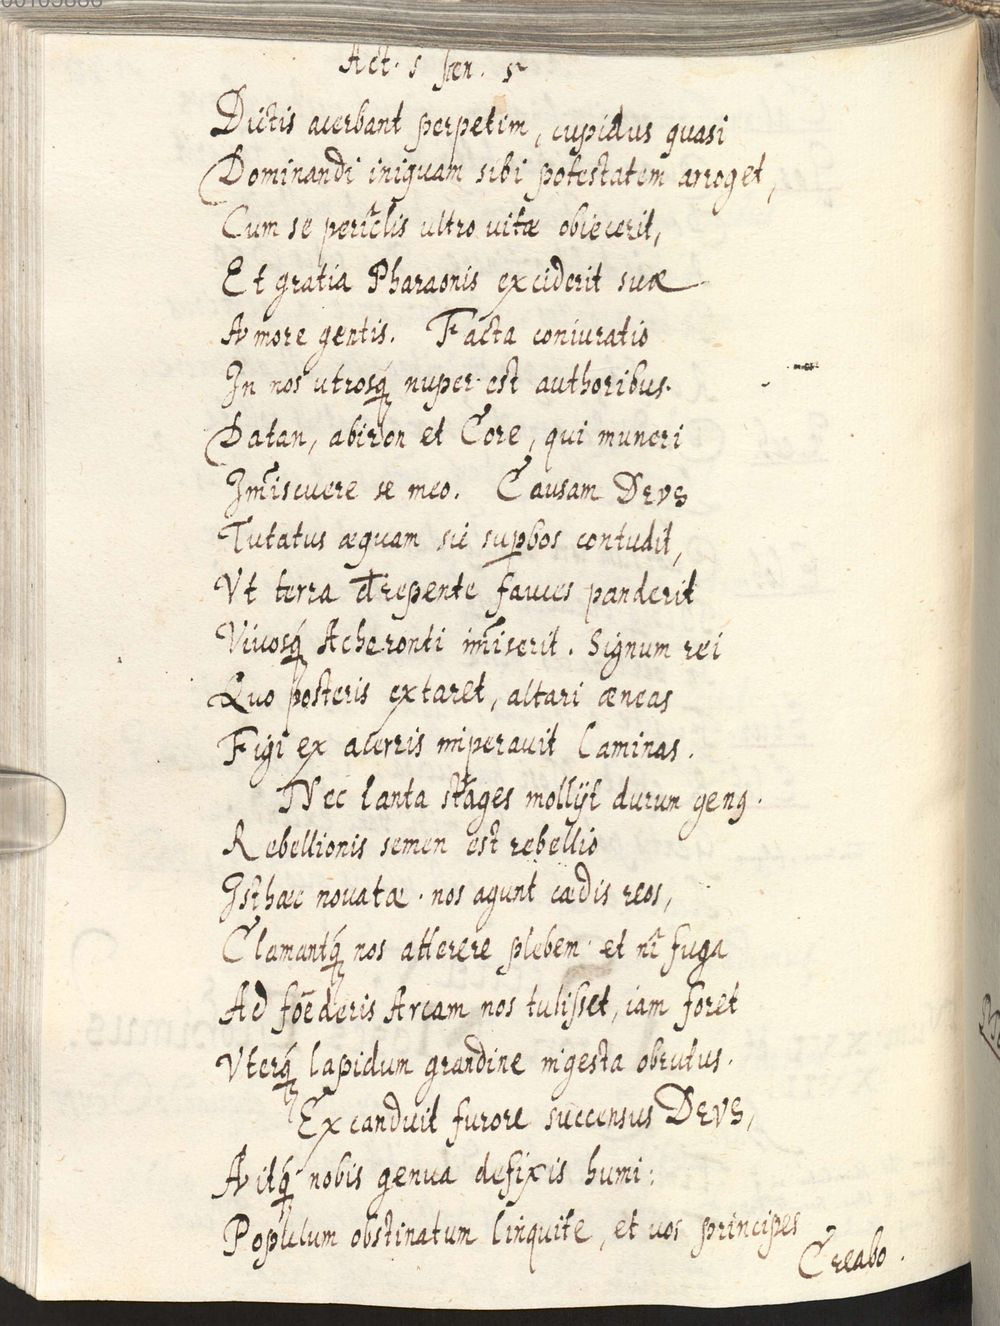 Act. 5 scen. 5
Dictis acerbant perpetim, cupidus quasi
Dominandi iniquam sibi potestatem arroget,
Cum se peric̃lis ultro vitæ obiecerit,
Et gratia Pharaonis exciderit suæ
Amore gentis. Facta coniuratio
In nos utrosq́ nuper est authoribus.
Datan, abiron et Core, qui muneri
Im̃iscuere se meo. Causam Devs
Tutatus æquam sic supbos contudit,
Vt terra derepente fauces panderit
Viuosq́ Acheronti im̃iserit. Signum rei
Quo posteris extaret, altari æneas
Figi ex acerris imperauit laminas.
Nec tanta strages mollijt durum geng.
Rebellionis semen est rebellio
Isthæc nouatæ. nos agunt cædis reos,
Clamantq́ nos atterere plebem. et nĩ fuga
Ad fœderis Arcam nos tulisset, iam foret
Vterq́ lapidum grandine ingesta obrutus.
Excanduit furore succensus Devs,
Aitq́ nobis genua defixis humi:
Populum obstinatum linquite, et uos principes
Creabo.